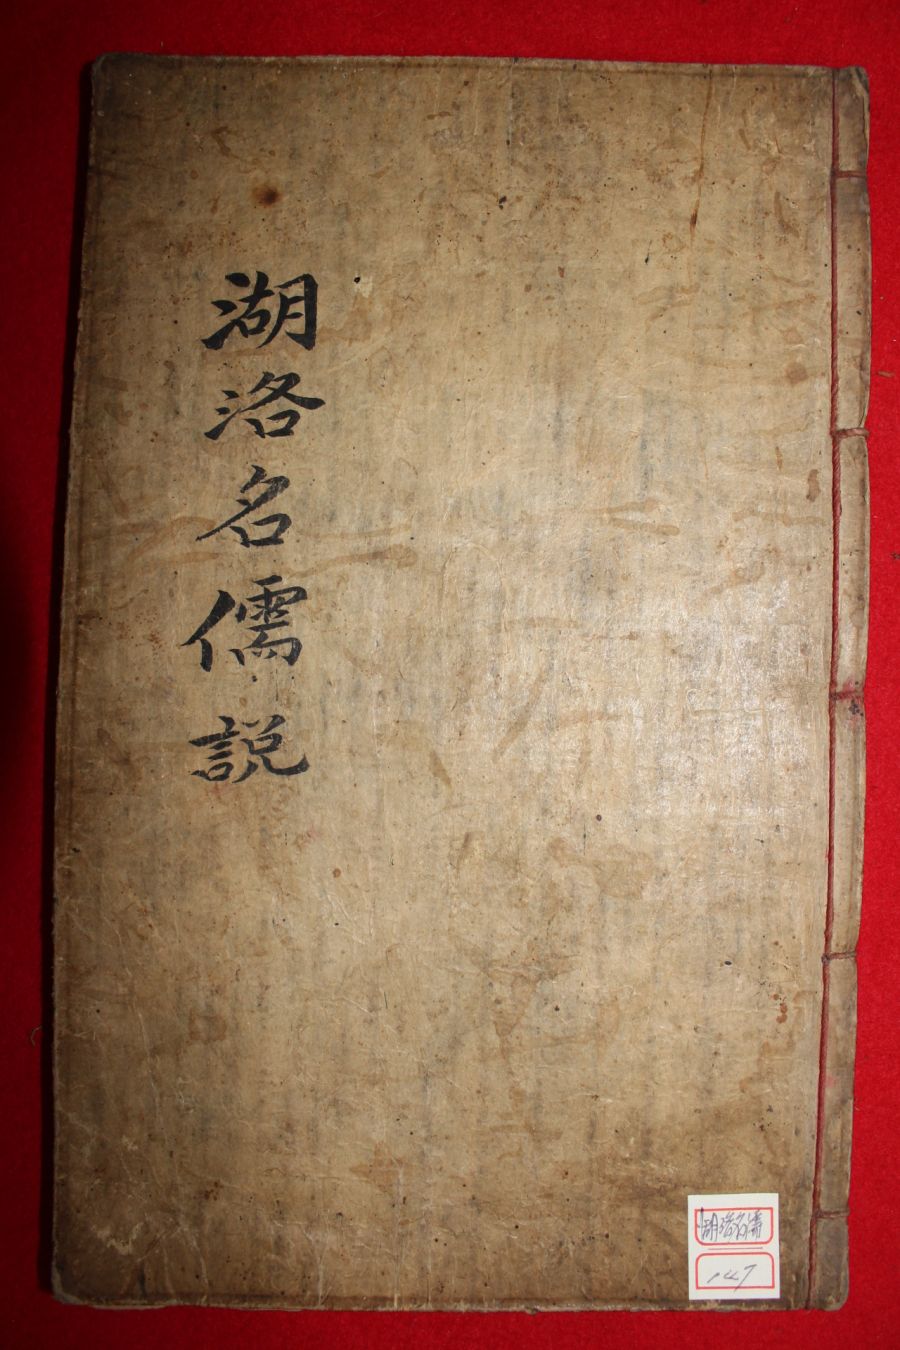 湖洛名儒說
湖洛名儒
147